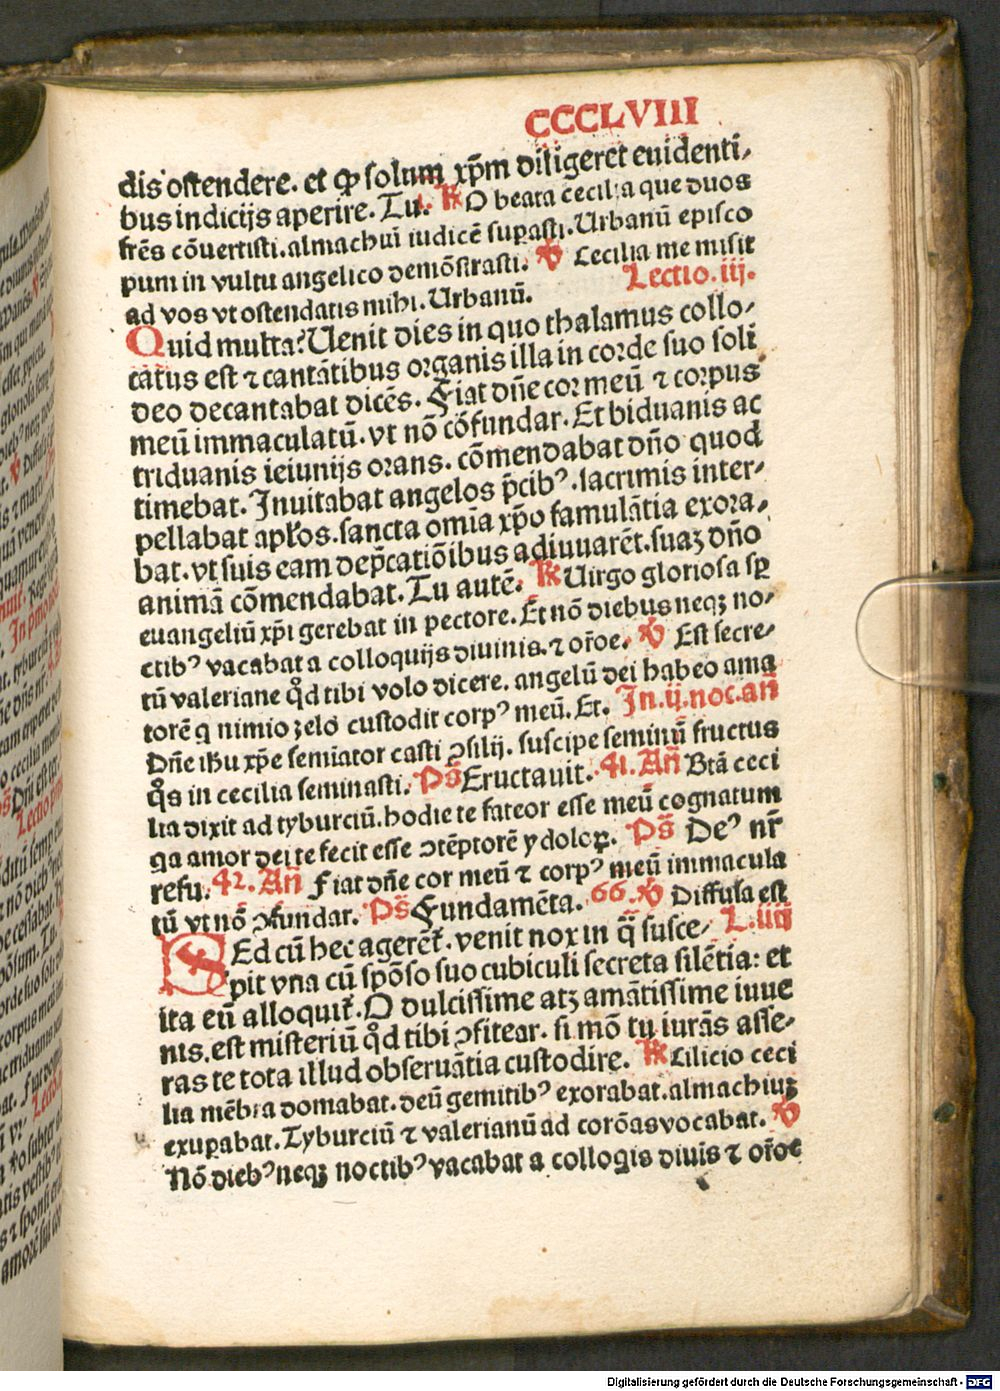 CCCLVIII
dis ostendere. et ꝙ solum xp̄m diligeret euidenti⸗
bus indicijs aperire. Tu. ℟ O beata cecilia que duos
frēs cōuertisti. almachiū iudicē suꝑasti. Urbanū episco
pum in vultu angelico demōstrasti. ℣ Cecilia me misit
ad vos vt ostendatis mihi. Urbanū. Lectio. iij.
Quid multa? Uenit dies in quo thalamus collo⸗
catus est ⁊ cantātibus organis illa in corde suo soli
deo decantabat dicēs. Fiat dn̄e cor meū ⁊ corpus
meū immaculatū. vt nō cōfundar. Et biduanis ac
triduanis ieiunijs orans. cōmendabat dn̄o quod
timebat. Inuitabat angelos p̄cibꝰ. lacrimis inter⸗
pellabat apłos. sancta omīa xp̄o famulātia exora⸗
bat. vt suis eam dep̄catiōibus adiuuarēt. suaꝫ dn̄o
animā cōmendabat. Tu autē. ℟ Uirgo gloriosa sꝑ
euangeliū xp̄i gerebat in pectore. Et nō diebus neqꝫ no⸗
ctibꝰ vacabat a colloquijs diuinis. ⁊ or̄oe. ℣ Est secre⸗
tū valeriane qd̓ tibi volo dicere. angelū dei habeo ama
torē q nimio zelo custodit corpꝰ meū. Et. In. ij. noc. an̄
Dn̄e ihu xp̄e semīator casti ↄsilij. suscipe seminū fructus
q̓s in cecilia seminasti. Ps̄ Eructauit. 41. An̄ Btā ceci
lia dixit ad tyburciū. hodie te fateor esse meū cognatum
qa amor dei te fecit esse ↄtēptorē ydoloꝝ. Ps̄ Deꝰ nr̄
refu. 42. An̄ Fiat dn̄e cor meū ⁊ corpꝰ meū immacula
tū vt nō ↄfundar. Ps̄ Fundamēta. 66. ℣ Diffusa est
SEd cū hec agerēt̉. venit nox in q̄ susce⸗ L. iiij
pit vna cū spōso suo cubiculi secreta silētia: et
ita eū alloquit̉. O dulcissime atqꝫ amātissime iuue
nis. est misteriū qd̓ tibi ↄfitear. si mō tu iurās asse⸗
ras te tota illud obseruātia custodire. ℟ Cilicio ceci
lia mēbra domabat. deū gemitibꝰ exorabat. almachiuꝫ
exuꝑabat. Tyburciū ⁊ valerianū ad corōas vocabat. ℣
Nō diebꝰ neqꝫ noctibꝰ vacabat a colloqis diuīs ⁊ or̄oe
Digitalisierung gefördert durch die Deutsche Forschungsgemeinschaft - DFG